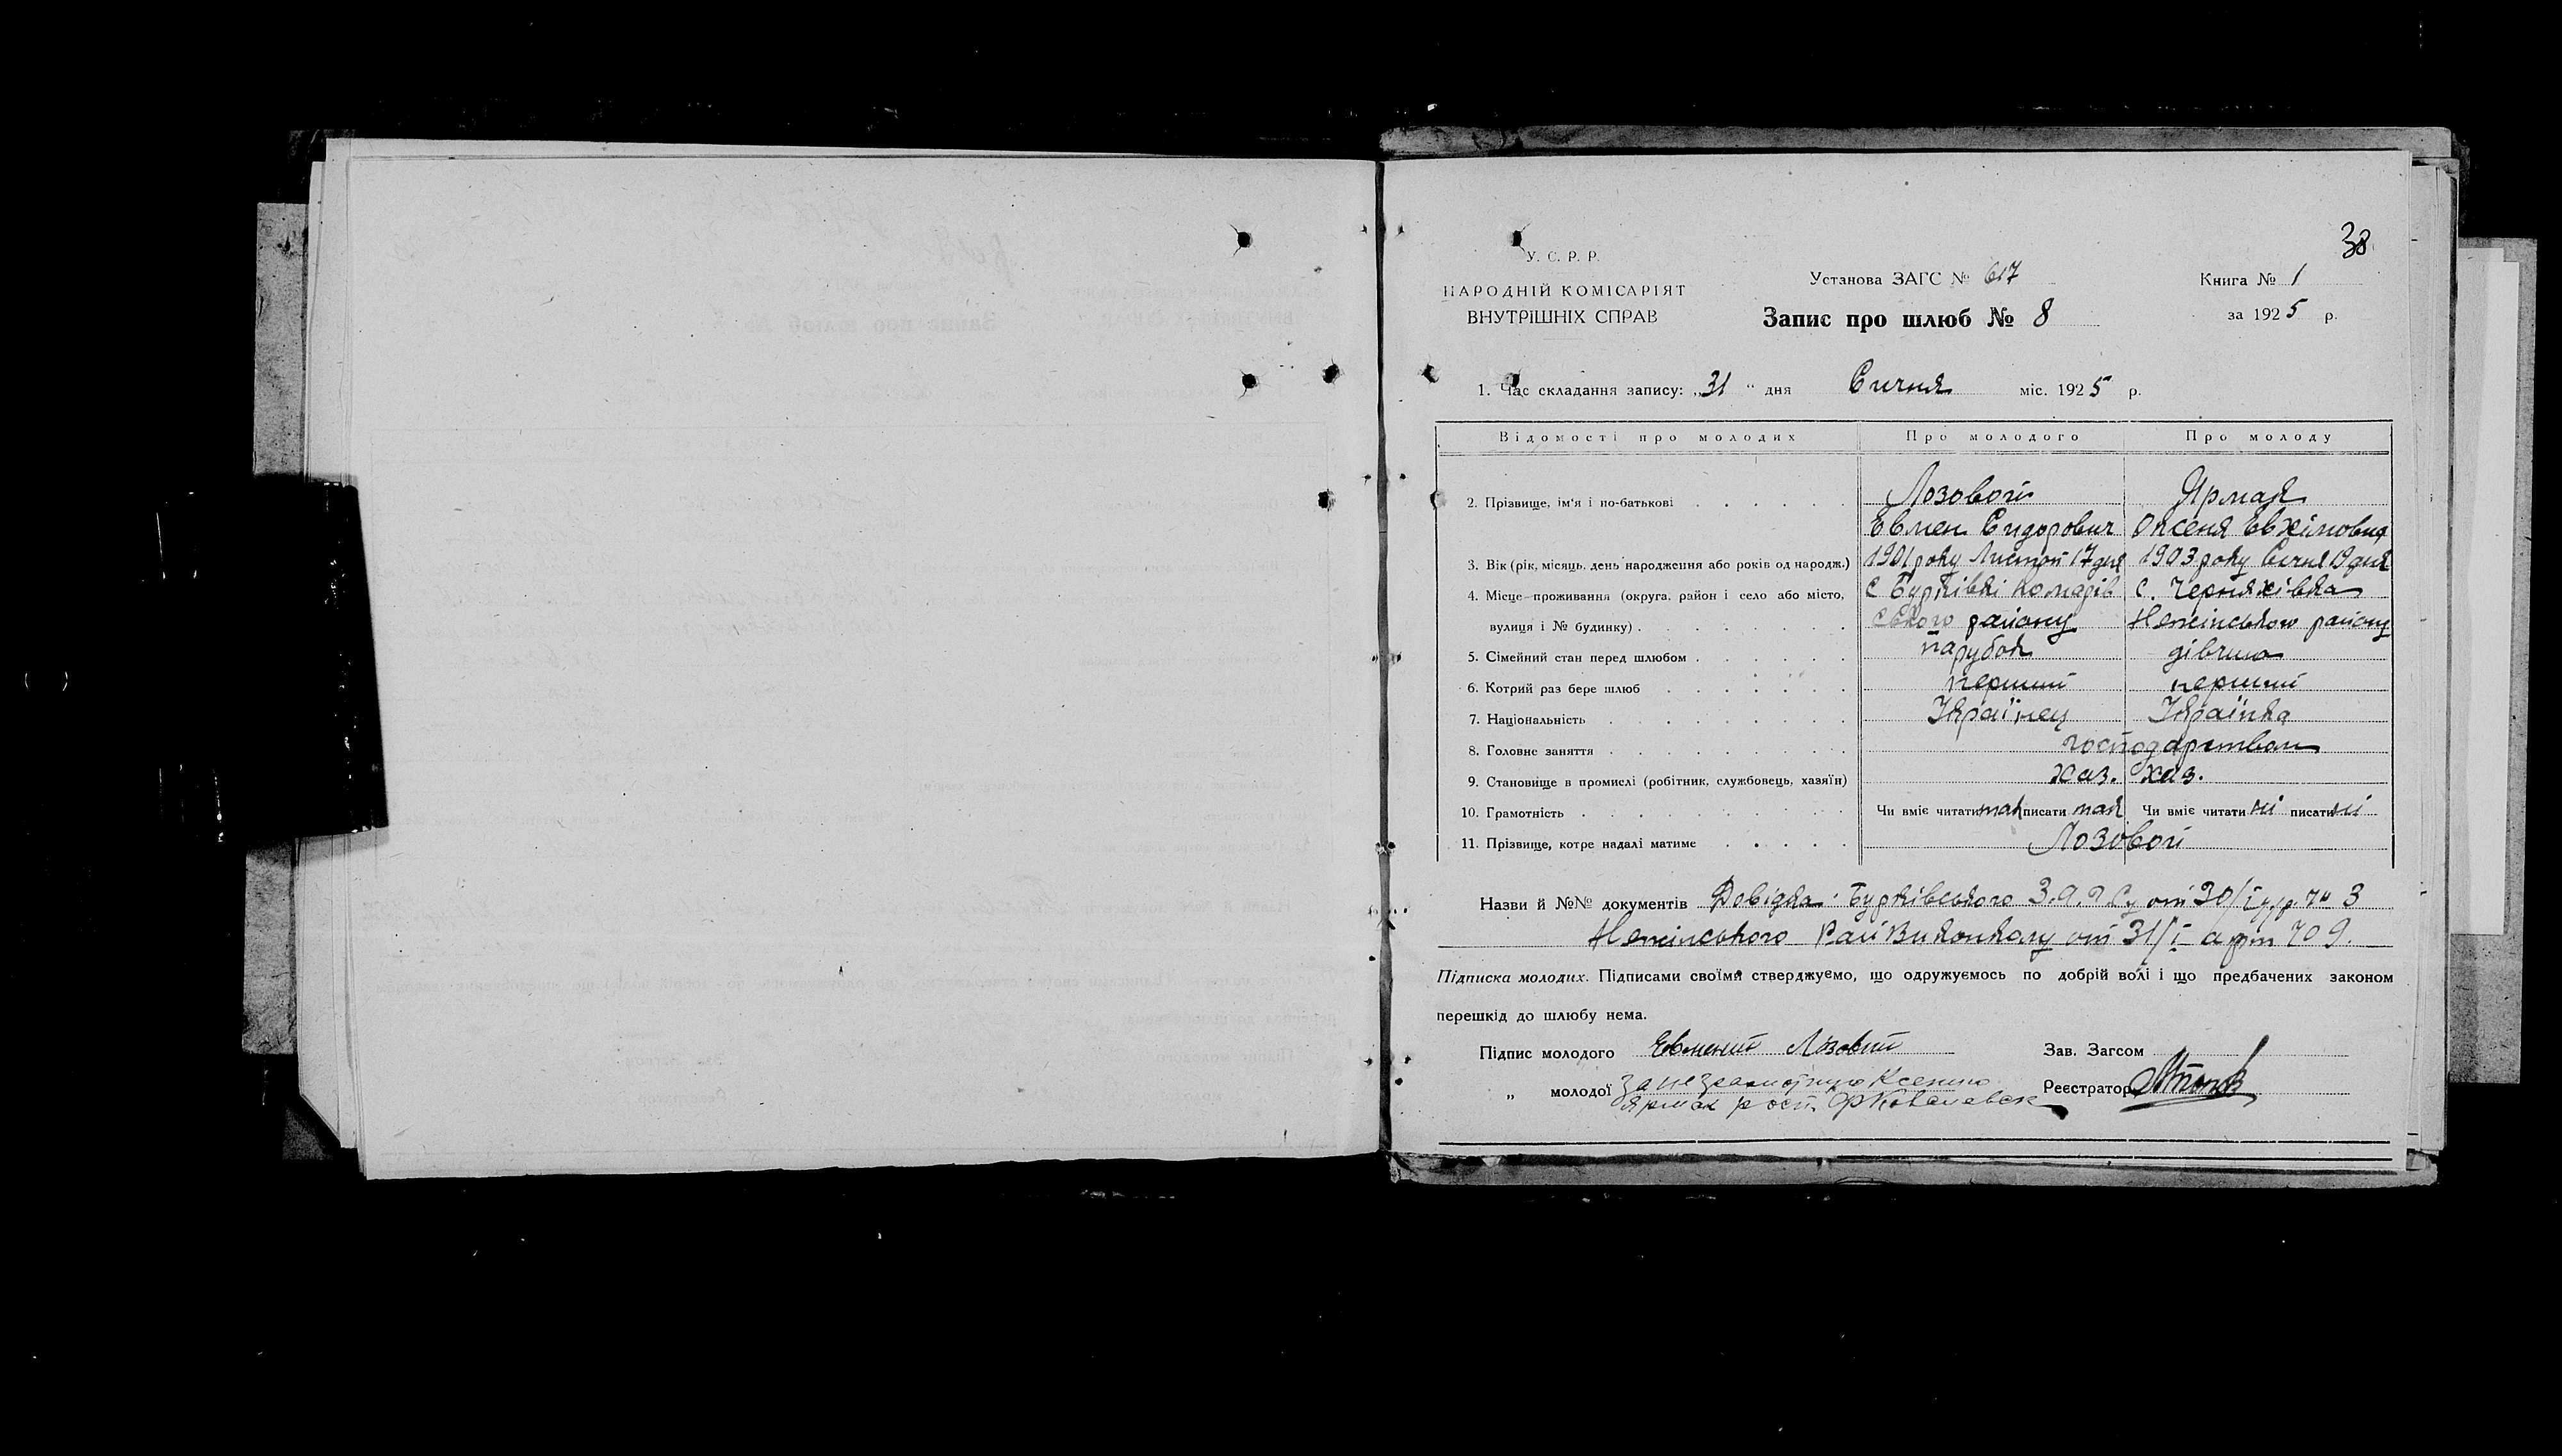 38
У. С. Р. Р.
НАРОДНІЙ КОМІСАРІЯТ
ВНУТРІШНІХ СПРАВ
Установа ЗАГС № 617
Запис про шлюб № 8
Книга № 1
за 1925 р.
1. Час складання запису: „31“ дня Січня міс. 1925 р.
Відомості про молодих Про молодого Про молоду
2. Прізвище, ім'я і по-батькові Лозовой Ярмак
Евмен Сидорович Оксеня Евхімовна
3. Вік (рік, місяць, день народження або років од народж.) 1901 року Листоп 17 дня 1903 року Січня 19 дня
4. Місце проживання (округа, район і село або місто, С Бурківкі Комарів с. Черняхівка
вулиця і № будинку) ського району Неженського району
5. Сімейний стан перед шлюбом парубок дівчина
6. Котрий раз бере шлюб перший перший
7. Національність Українец Українка
8. Головне заняття господарством
9. Становище в промислі (робітник, службовець, хазяїн) хаз. хаз.
10. Грамотність Чи вміє читати так писати так Чи вміє читати ні писати ні
11. Прізвище, котре надалі матиме Лозовой
Назви й №№ документів Довідка Бурківського от 30/I № 3
Неженського РайВиконкому от 31/I 709.
Підписка молодих. Підписами своїми стверджуємо, що одружуємось по добрій волі і що предбачених законом
перешкід до шлюбу нема.
Підпис молодого Евмений Лозовий Зав. Загсом
„ молодої За неграмотную Ксению Реєстратор
Ярмак росп.